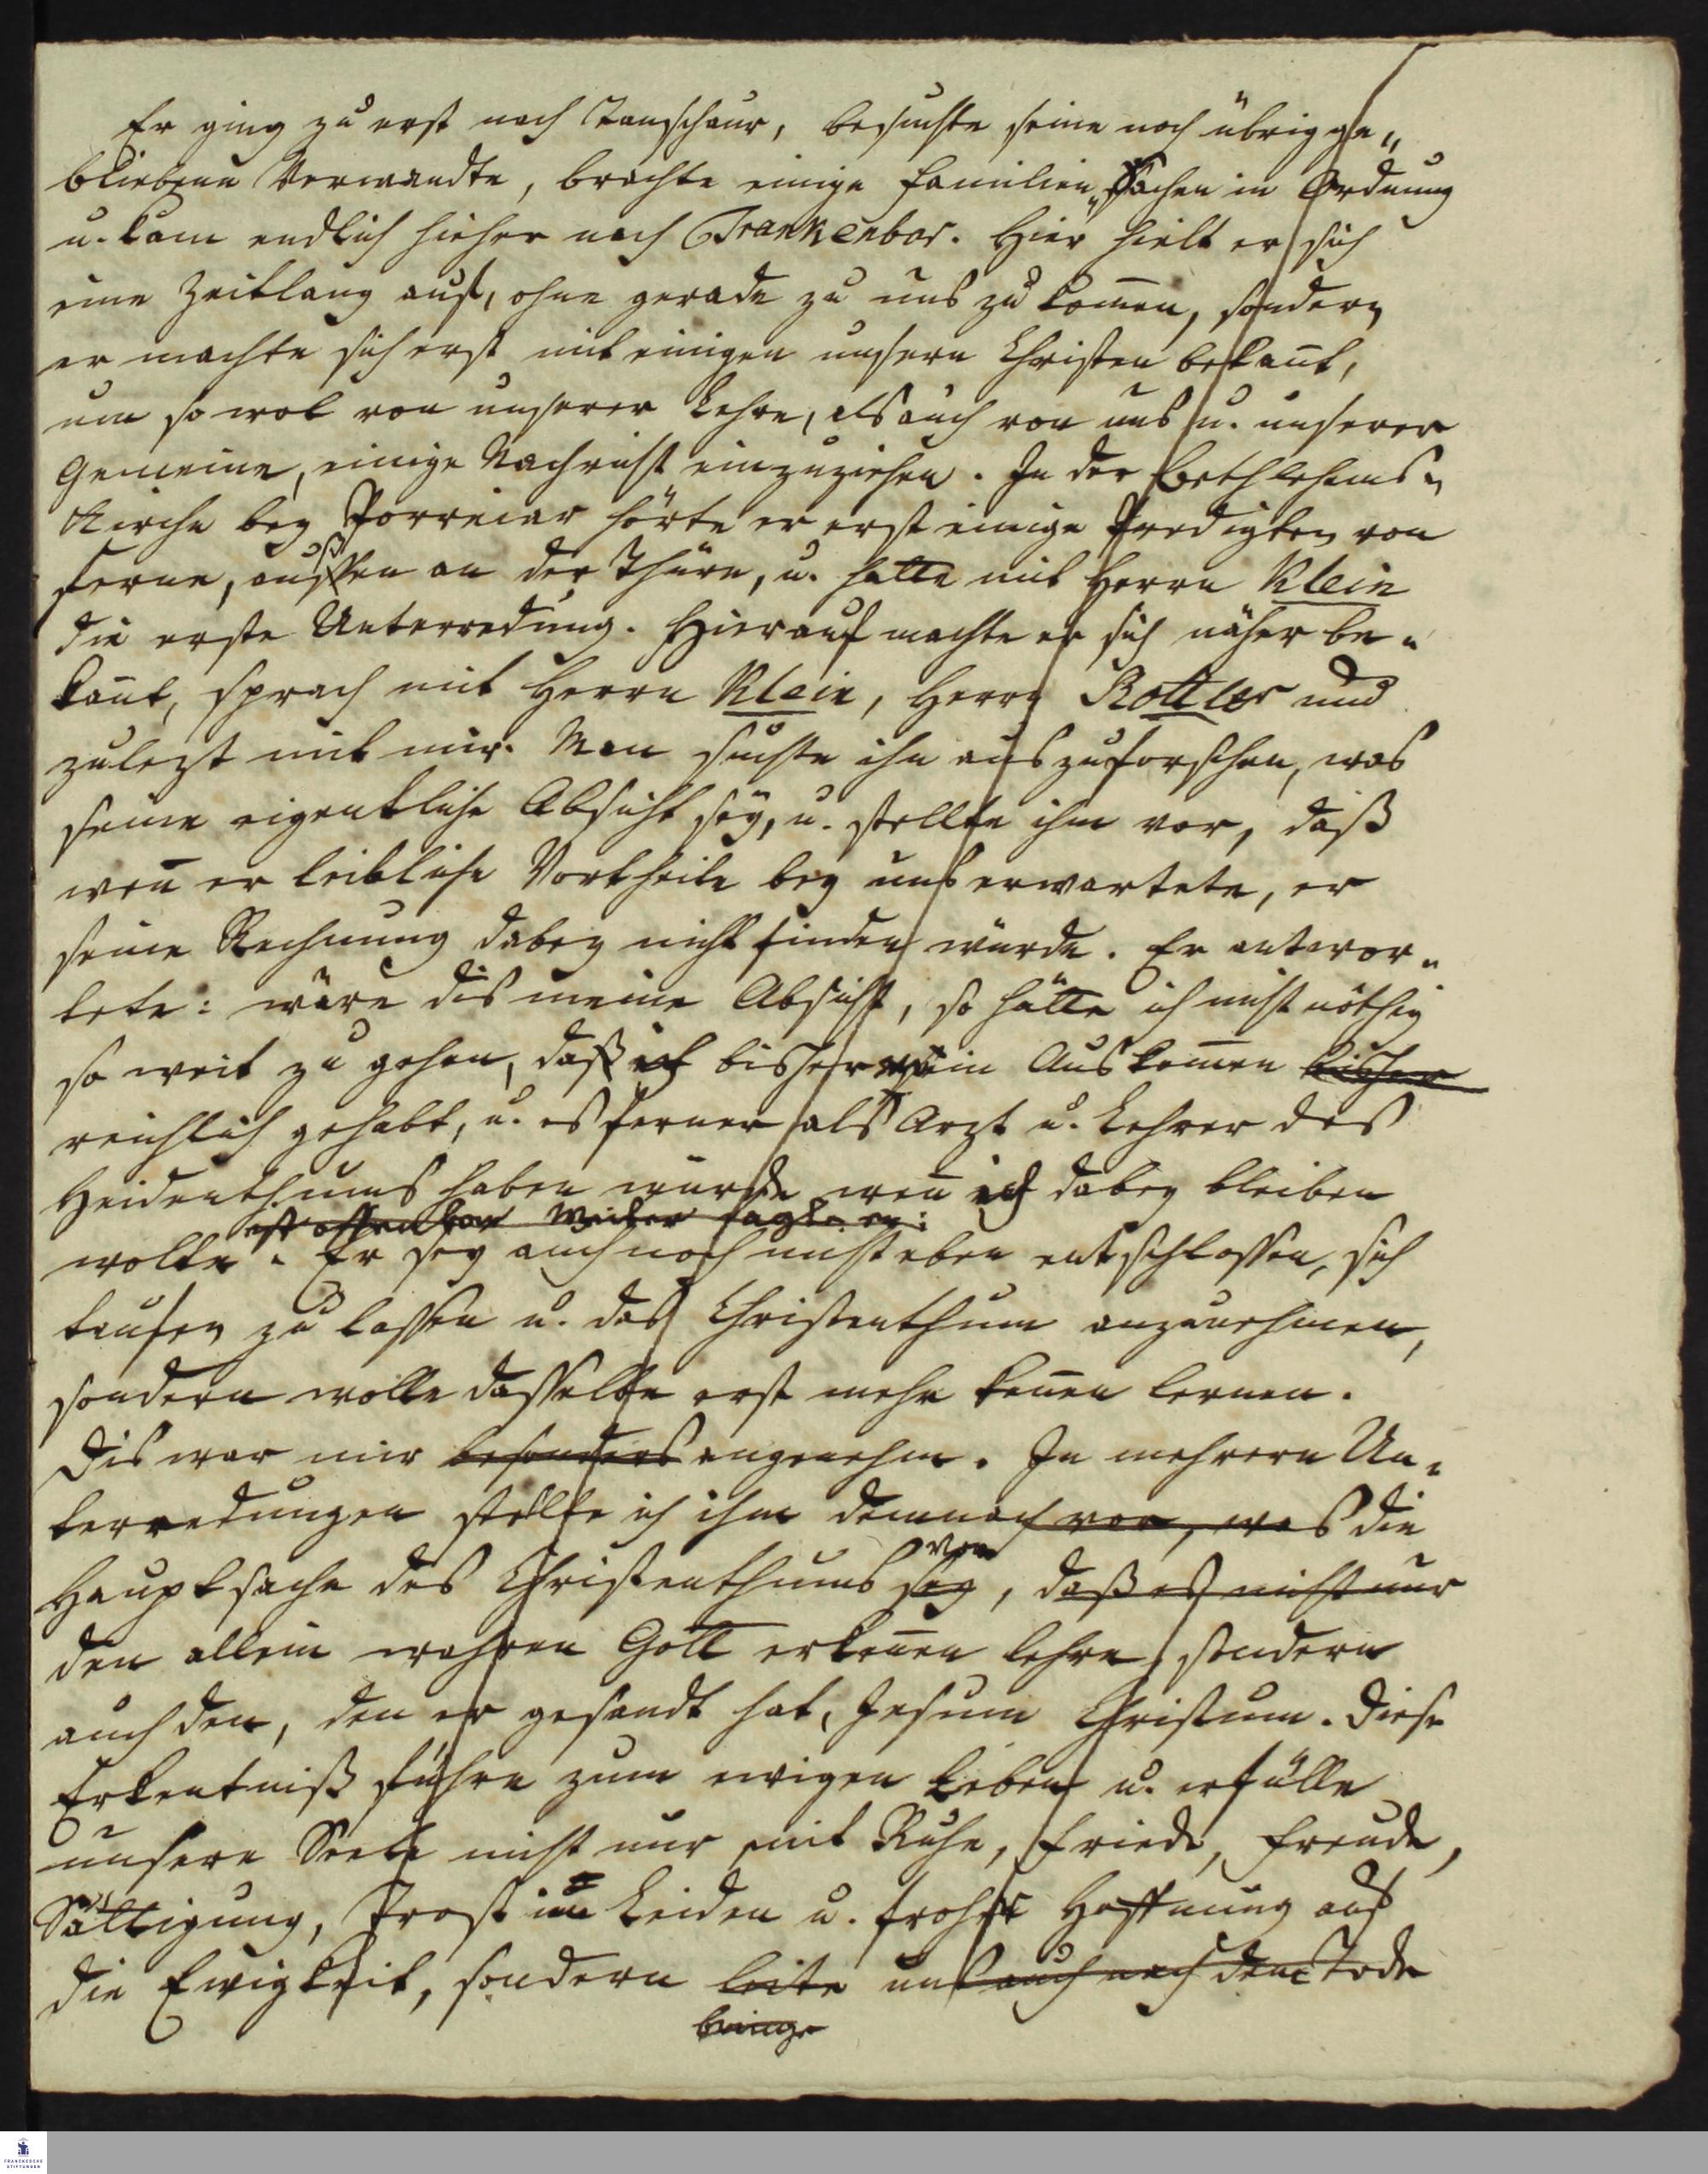 Er ging zu erst nach Tanschaur, besuchte seine noch übrig ge„
bliebene Verwandte, brachte einige Familien„Sachen in Ordnung
u. kam endlich hieher nach Trankenbar. Hier hielt er sich
eine Zeitlang auf, ohne gerade zu uns zu kom̄en, sondern
er machte sich erst mit einigen unsern Christen bekan̄t,
um so wol von unserer Lehre, als auch von uns u. unserer
Gemeine, einige Nachricht einzuziehen. In der Bethlehems„
Kirche bey Porreiar hörte er erst einige Predigten von
ferne, aussen an der Thüre, u. hatte mit Herrn Klein
die erste Unterredung. Hierauf machte er sich näher be„
kan̄t, sprach mit Herrn Klein, Herrn Rottler und
zulezt mit mir. Man suchte ihn auszuforschen, was
seine eigentliche Absicht sey, u. stellte ihm vor, daß
wen̄ er leibliche Vortheile bey uns erwartete, er
seine Rechnung dabey nicht finden würde. Er antwor„
tete: wäre dis meine Absicht, so hätte ich nicht nöthig
so weit zu gehen, daß ich bisher mein Auskom̄en bisher
reichlich gehabt, u. es ferner als Arzt u. Lehrer des
Heidenthums haben würde wen̄ ich dabey bleiben
weiter sagte er:
wolle. Er sey auch noch nicht eben entschlossen, sich
taufen zu lassen u. das Christenthum anzunehmen,
sondern wolle dasselbe erst mehr ken̄en lernen.
Dis war mir besonders angenehm. In mehrern Un„
terredungen stellte ich ihm demnach vor, was die
Hauptsache des Christenthums sey vor, daß es nicht nur
den allein wahren Gott erken̄en lehre, sondern
auch den, den er gesandt hat, Jesum Christum. Diese
Erkentniß führe zum ewigen Leben u. erfülle
unsere Seele nicht nur mit Ruhe, Friede, Freude,
Sättigung, Trost im Leiden u. froher Hoffnung auf
die Ewigkeit, sondern leite uns auch nach dem Tode
bringe
FRANCKESCHE
STIFTUNGEN